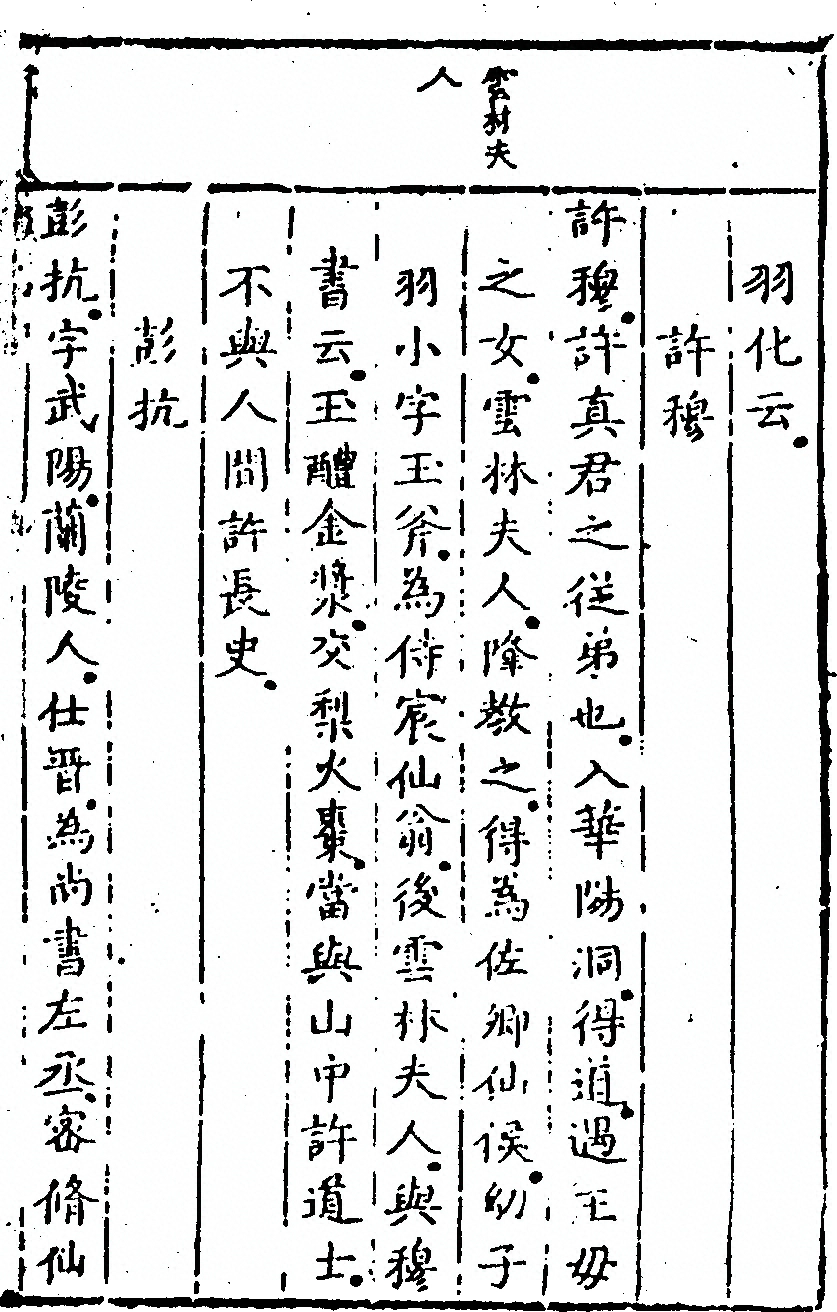 雲林夫
人
羽化云。
許穆
許穆。許真君之從弟也。入華陽洞。得道。遇王母
之女。雲林夫人。降教之。得為佐卿仙侯。幼子
羽小字玉斧。為侍宸仙翁。後雲林夫人。與穆
書云。玉醴金漿。交梨火棗。當與山中許道士。
不與人間許長史。
彭抗
彭抗。字武陽。蘭陵人。仕晋。為尚書左丞。密脩仙